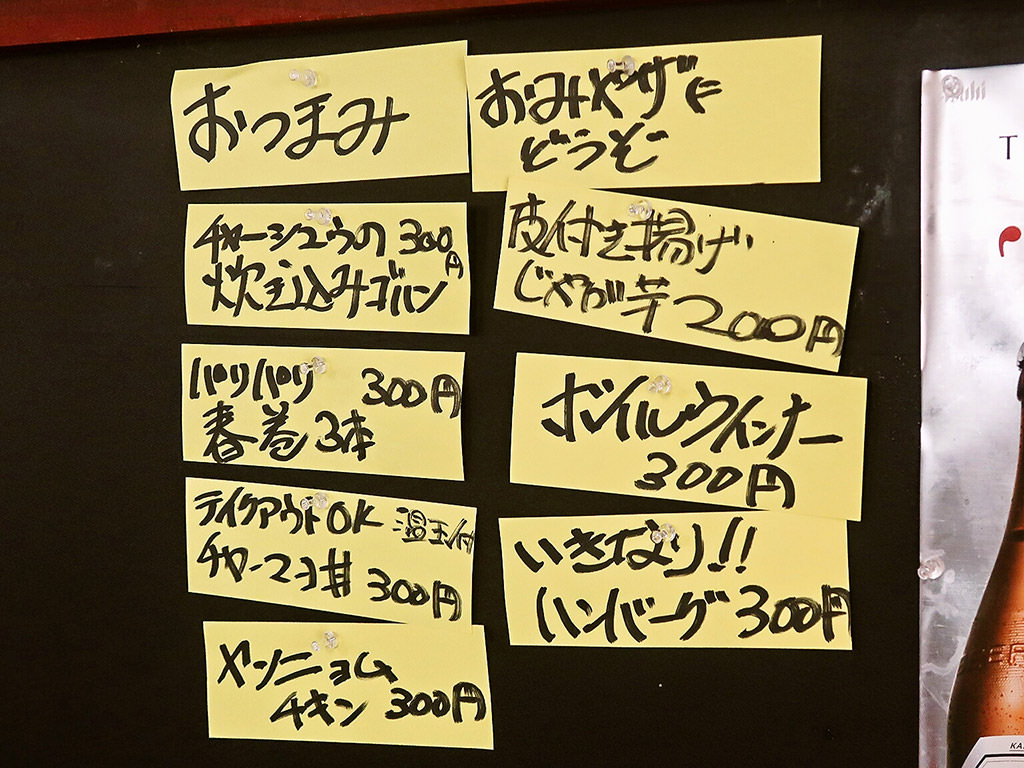 おつまみ
おみやげに
どうぞ
チャーシュウの 300円
炊き込みゴハン
皮付き揚げ
じゃが芋 200円
パリパリ 300円
春巻 3本
ボイルウインナー
300円
テイクアウトOK 温玉付
チャーマヨ丼 300円
いきなり!!
ハンバーグ 300円
ヤンニョム
チキン 300円
Asahi
T